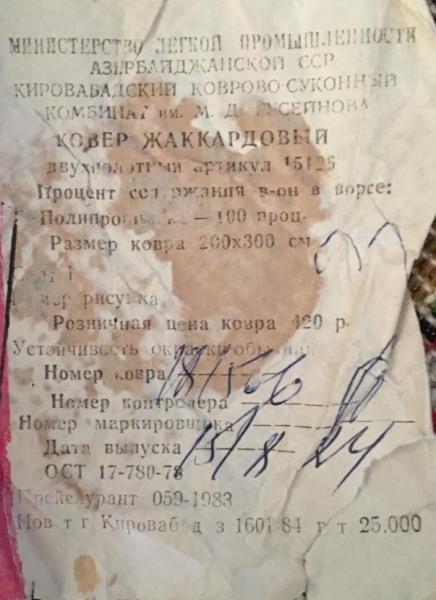 МИНИСТЕРСТВО ЛЕГКОЙ ПРОМЫШЛЕННОСТИ
АЗЕРБАЙДЖАНСКОЙ ССР
КИРОВАБАДСКИЙ КОВРОВО-СУКОННЫЙ
КОМБИНАТ им. М. Д. ГУСЕЙНОВА
КОВЕР ЖАККАРДОВЫЙ
двухполотный артикул 15126
Процент содержания в-он в ворсе:
— 100 проц.
Размер ковра 200х300 см
рисунка
Розничная цена ковра 420 р.
Устойчивость окраски
Номер ковра
Номер контролера
Номер маркировщика
Дата выпуска 15/8 84
ОСТ 17-780-78
Прейскурант 059-1983
з 1601 84 г т 25.000